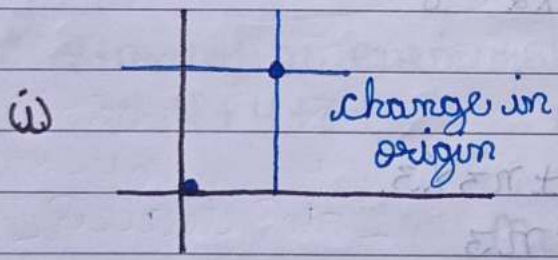 i)
change in
origin